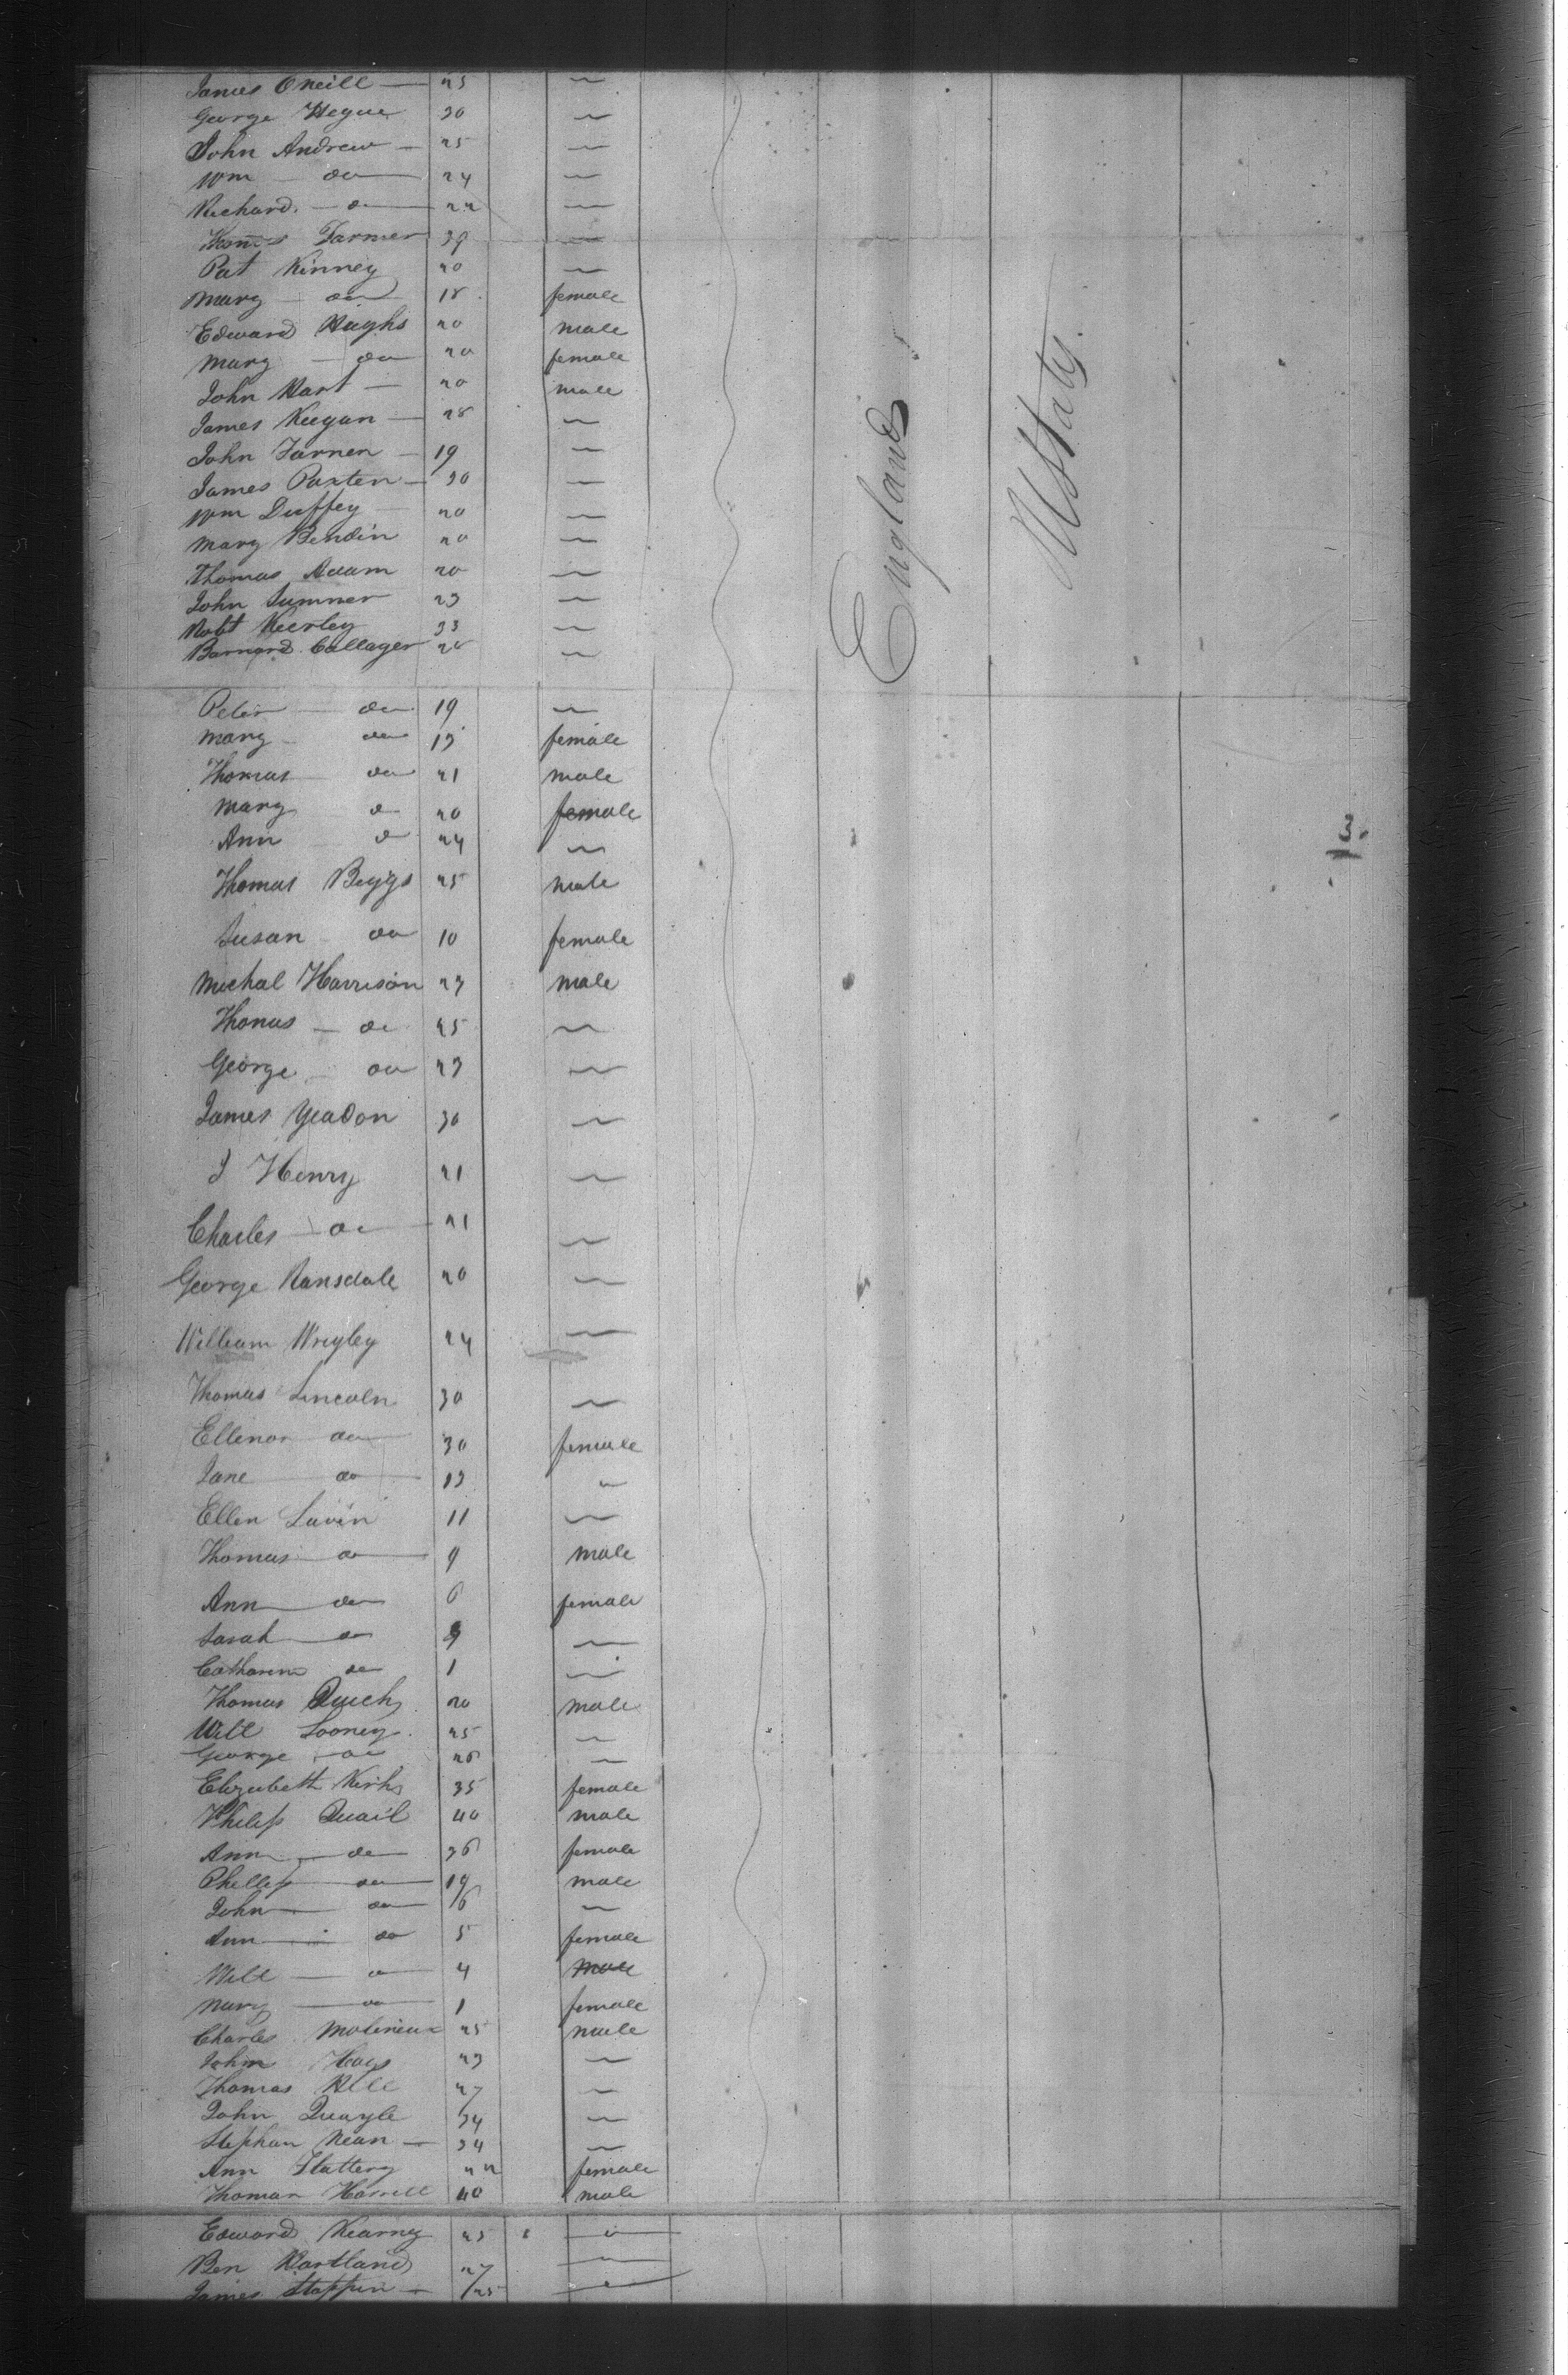 James Oneill — 25 "
George Hegue 30 "
John Andrew — 25 "
Wm — do — 24 "
Richard — do — 22 "
Thomas Farmer 39 "
Pat Kinney 20 "
Mary — do 18 female
Edward Hughs 20 male
Mary — do 20 female
John Hart — 20 male
James Keegan — 28 "
John Farnen — 19 "
James Paxten — 30 "
Wm Duffey — 20 "
Mary Bendin 20 "
Thomas Adam 20 "
John Sumner 23 "
Robt Keerley 33 "
Barnard Callager 28 "
England
U States
Peter — do 19 "
Mary — do 13 female
Thomas — do 21 male
Mary do 20 female
Ann do 24 "
3.
Thomas Beggs 25 male
Susan do 10 female
Michal Harrison 23 male
Thomas — do 25 "
George — do 23 "
James Yeadon 30 "
J Henry 21 "
Charles — do — 21 "
George Ransdale 20 "
William Wrigley 24 "
Thomas Lincoln 30 "
Ellenor do 30 female
Jane — do — 13 "
Ellen Lavin 11 "
Thomas — do — 9 male
Ann — do 6 female
Sarah — do "
Catharine do 1 "
Thomas 20 male
Will Looney 25 "
George do 26 "
Elizabeth Kirk 35 female
Philip Quail 40 male
Ann — do 36 female
Phillip — do — 19 male
John — do — 6 "
Ann — do 5 female
Will — do — 4 male
Mary — do — 1 female
Charles Molineux 25 male
John Hays 23 "
Thomas Kell 27 "
John Quayle 34 "
Stephan Kean — 34 "
Ann Slattery 22 female
Thomas Harrill 40 male
Edward Kearney 25 "
Ben Hartland 27 "
James 25 "